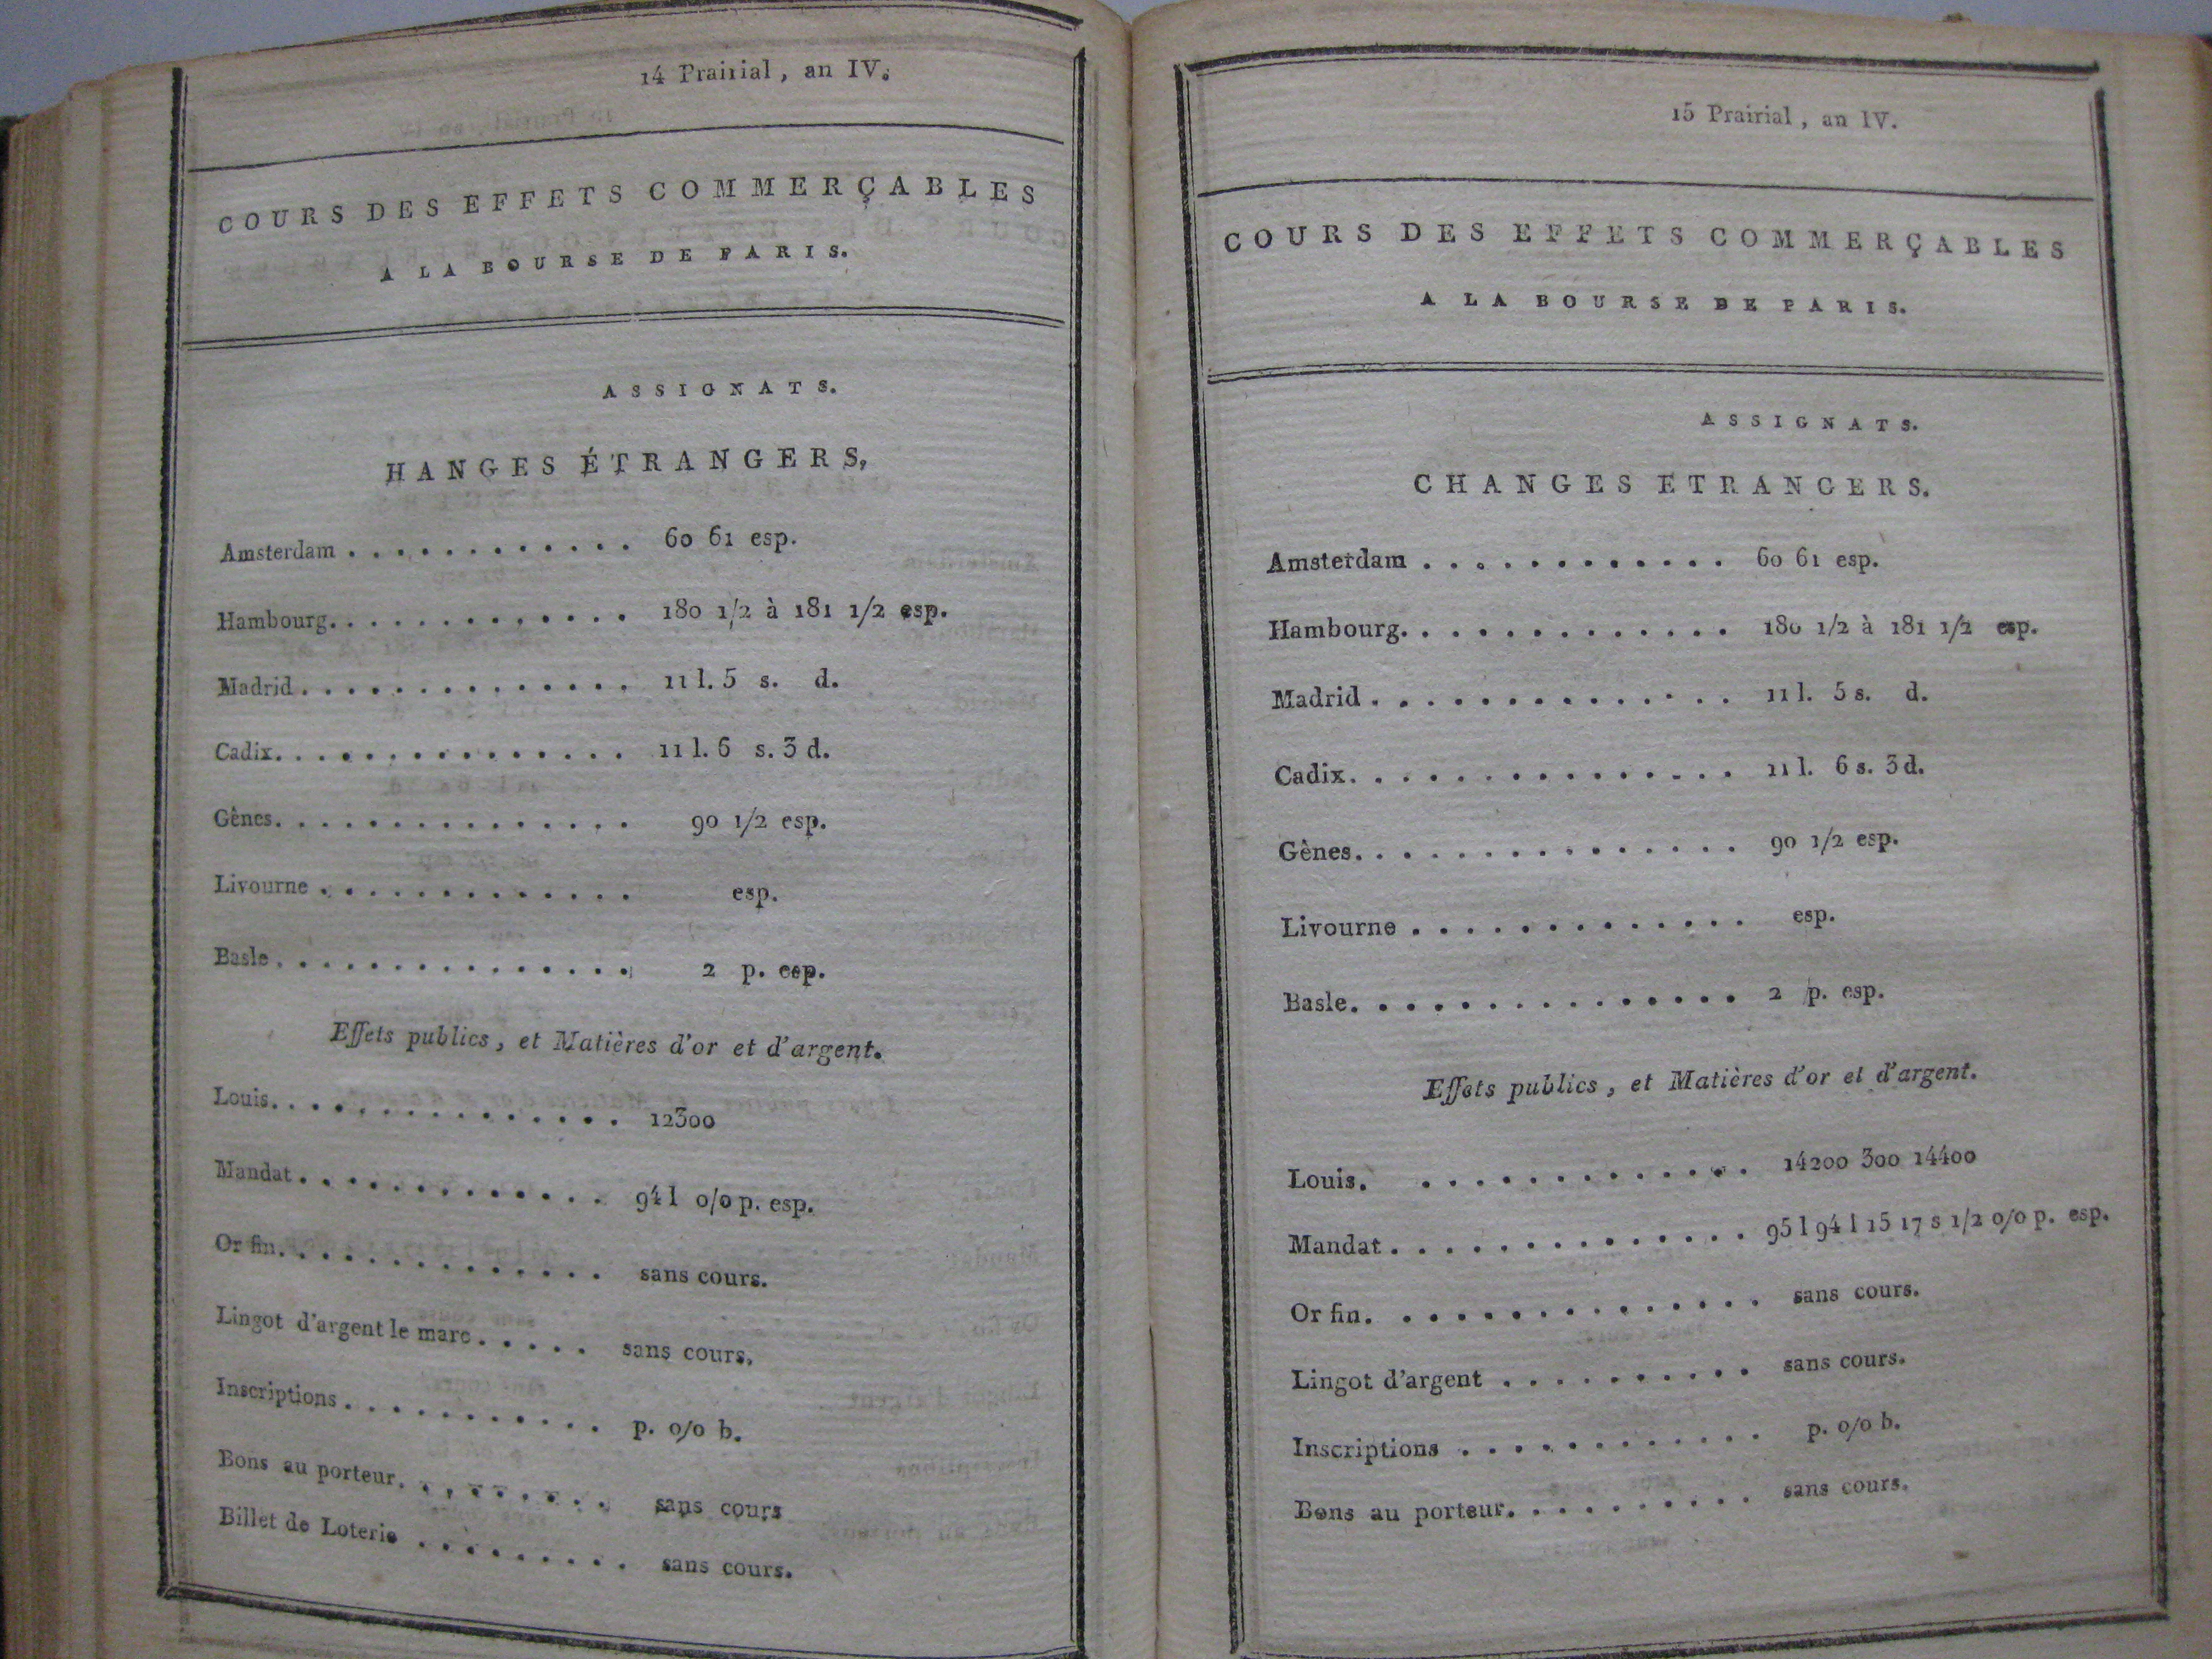 14 Prairial, an IV.
COURS DES EFFETS COMMERÇABLES
A LA BOURSE DE PARIS.
ASSIGNATS.
HANGES ÉTRANGERS,
Amsterdam . . . . . . . . . . . . 60 61 esp.
Hambourg. . . . . . . . . . . . . 180 1/2 à 181 1/2 esp.
Madrid . . . . . . . . . . . . . . 11 l. 5 s. d.
Cadix. . . . . . . . . . . . . . . 11 l. 6 s. 3 d.
Gênes. . . . . . . . . . . . . . . 90 1/2 esp.
Livourne . . . . . . . . . . . . . esp.
Basle . . . . . . . . . . . . . . . 2 p. esp.
Effets publics, et Matières d'or et d'argent.
Louis. . . . . . . . . . . . . . . 12300
Mandat . . . . . . . . . . . . . 94 l o/o p. esp.
Or fin. . . . . . . . . . . . . . sans cours.
Lingot d'argent le marc . . . . . sans cours.
Inscriptions . . . . . . . . . . . p. o/o b.
Bons au porteur. . . . . . . . . sans cours
Billet de Loterie . . . . . . . . . sans cours.
15 Prairial, an IV.
COURS DES EFFETS COMMERÇABLES
A LA BOURSE DE PARIS.
ASSIGNATS.
CHANGES ETRANGERS.
Amsterdam . . . . . . . . . . . . 60 61 esp.
Hambourg. . . . . . . . . . . . . 180 1/2 à 181 1/2 esp.
Madrid . . . . . . . . . . . . . . 11 l. 5 s. d.
Cadix. . . . . . . . . . . . . . . 11 l. 6 s. 3 d.
Gênes. . . . . . . . . . . . . . . 90 1/2 esp.
Livourne . . . . . . . . . . . . . esp.
Basle. . . . . . . . . . . . . . . 2 p. esp.
Effets publics, et Matières d'or et d'argent.
Louis. . . . . . . . . . . . . . 14200 300 14400
Mandat . . . . . . . . . . . . . . 95 l 94 l 15 17 s 1/2 o/o p. esp.
Or fin. . . . . . . . . . . . . . . sans cours.
Lingot d'argent . . . . . . . . . . sans cours.
Inscriptions . . . . . . . . . . . . p. o/o b.
Bons au porteur. . . . . . . . . . sans cours.